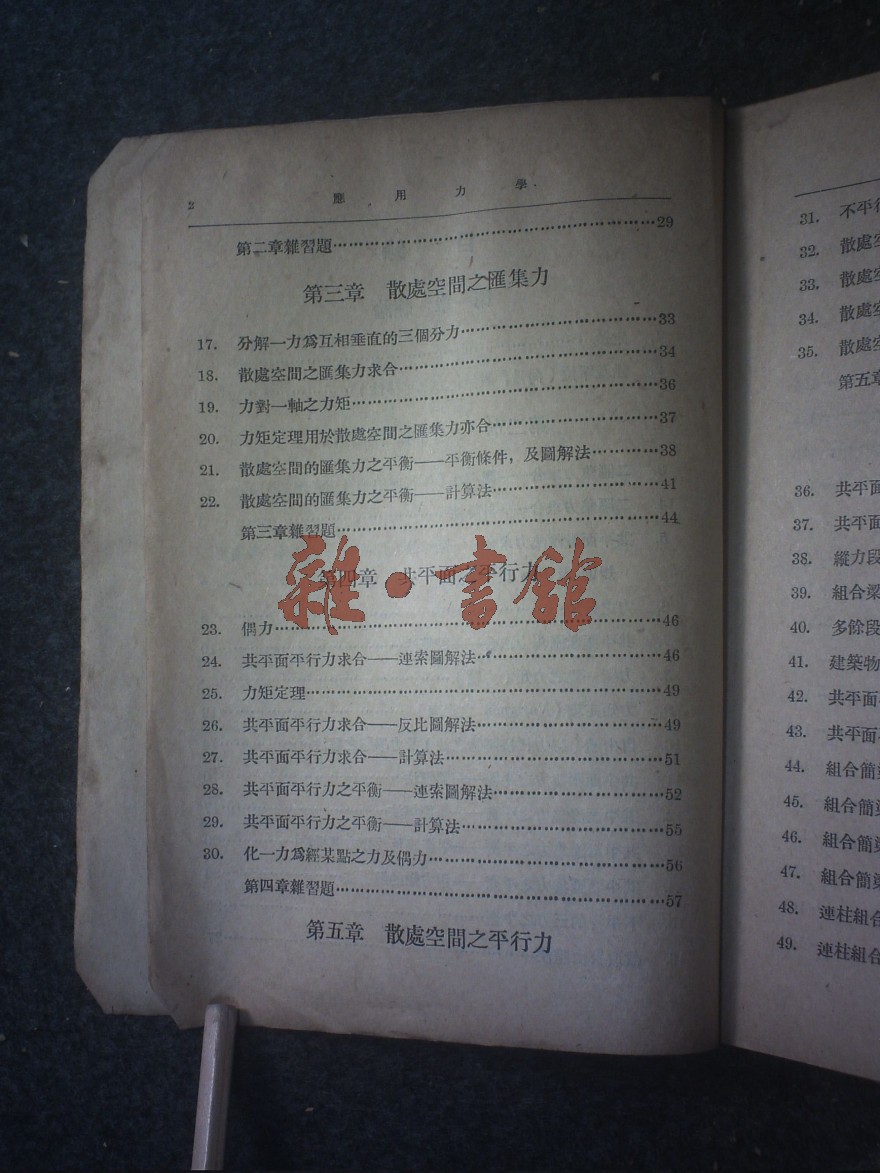 2 應用力學
第二章雜習題……29
第三章 散處空間之匯集力
17. 分解一力爲互相垂直的三個分力……33
18. 散處空間之匯集力求合……34
19. 力對一軸之力矩……36
20. 力矩定理用於散處空間之匯集力亦合……37
21. 散處空間的匯集力之平衡——平衡條件，及圖解法……38
22. 散處空間的匯集力之平衡——計算法……41
第三章雜習題……44
第四章 共平面之平行力
雜·書館
23. 偶力……46
24. 共平面平行力求合——連索圖解法……46
25. 力矩定理……49
26. 共平面平行力求合——反比圖解法……49
27. 共平面平行力求合——計算法……51
28. 共平面平行力之平衡——連索圖解法……52
29. 共平面平行力之平衡——計算法……55
30. 化一力爲經某點之力及偶力……56
第四章雜習題……57
第五章 散處空間之平行力
31. 不平行
32. 散處
33. 散處空
34. 散處空
35. 散處空
第五章
36. 共平面
37. 共平面
38. 縱力段
39. 組合梁
40. 多餘段
41. 建築物
42. 共平面
43. 共平面
44. 組合簡
45. 組合簡
46. 組合簡
47. 組合簡
48. 連柱組合
49. 連柱組合